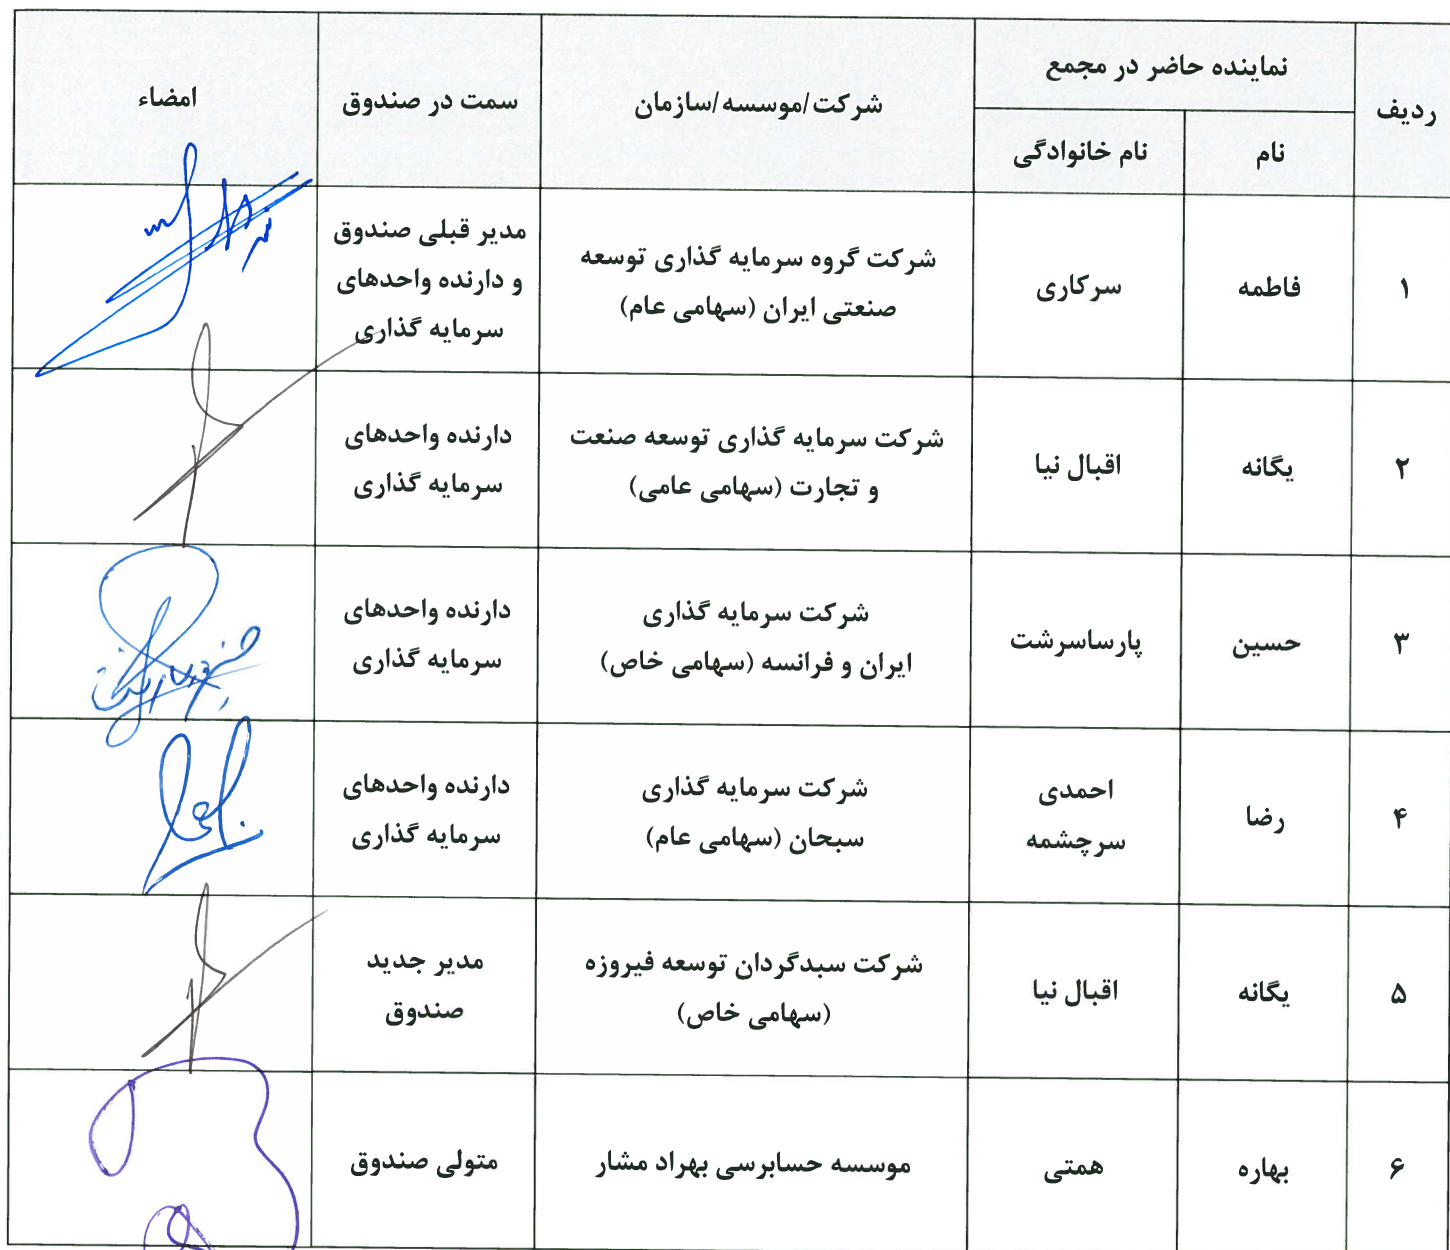 ردیف
نماینده حاضر در مجمع
نام
نام خانوادگی
شرکت/موسسه/سازمان
سمت در صندوق
امضاء
۱
فاطمه
سرکاری
شرکت گروه سرمایه گذاری توسعه
صنعتی ایران (سهامی عام)
مدیر قبلی صندوق
و دارنده واحدهای
سرمایه گذاری
۲
یگانه
اقبال نیا
شرکت سرمایه گذاری توسعه صنعت
و تجارت (سهامی عامی)
دارنده واحدهای
سرمایه گذاری
۳
حسین
پارساسرشت
شرکت سرمایه گذاری
ایران و فرانسه (سهامی خاص)
دارنده واحدهای
سرمایه گذاری
۴
رضا
احمدی
سرچشمه
شرکت سرمایه گذاری
سبحان (سهامی عام)
دارنده واحدهای
سرمایه گذاری
۵
یگانه
اقبال نیا
شرکت سبدگردان توسعه فیروزه
(سهامی خاص)
مدیر جدید
صندوق
۶
بهاره
همتی
موسسه حسابرسی بهراد مشار
متولی صندوق